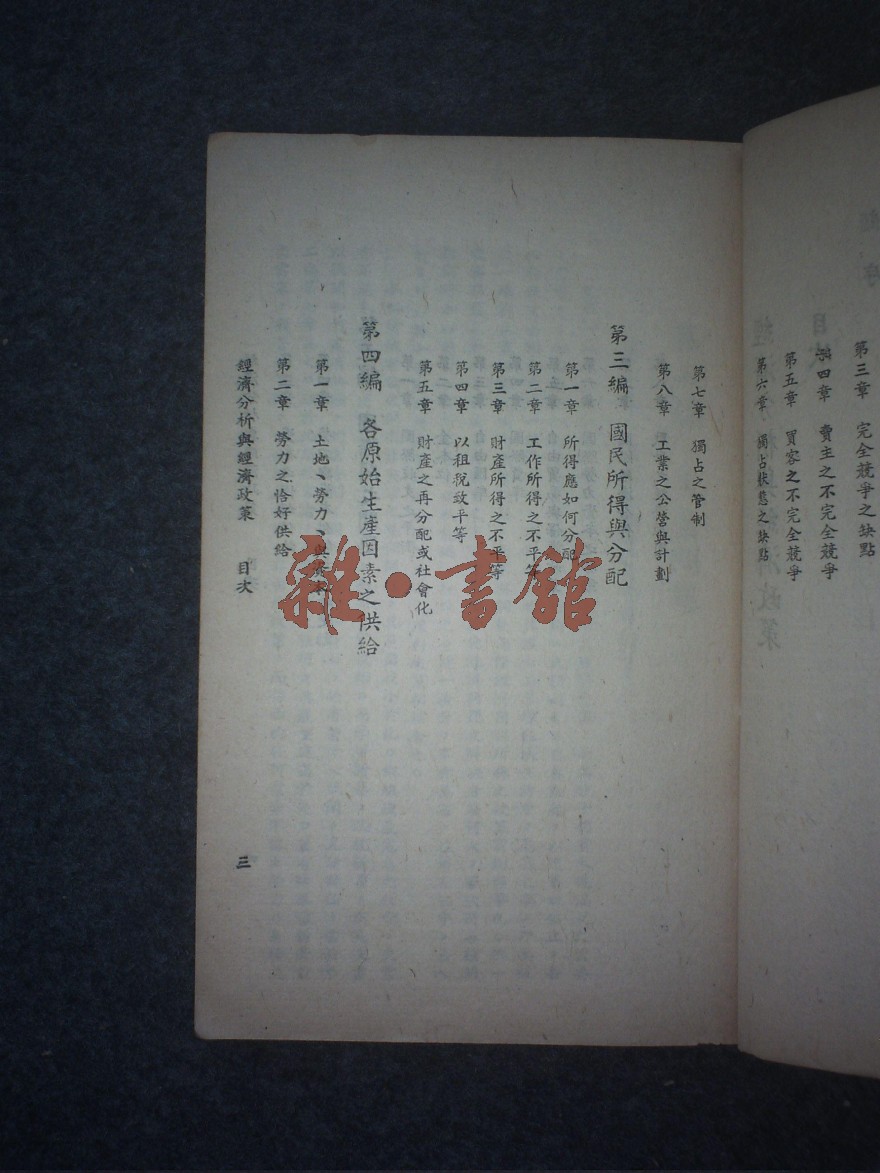 第三章 完全競爭之缺點
第四章 賣主之不完全競爭
第五章 買客之不完全競爭
第六章 獨占狀態之缺點
第七章 獨占之管制
第八章 工業之公營與計劃
第三編 國民所得與分配
第一章 所得應如何分配
第二章 工作所得之不平等
第三章 財產所得之不平等
第四章 以租稅致平等
第五章 財產之再分配或社會化
第四編 各原始生產因素之供給
第一章 土地、勞力、與
第二章 勞力之恰好供給
經濟分析與經濟政策 目次
三
雜·書館